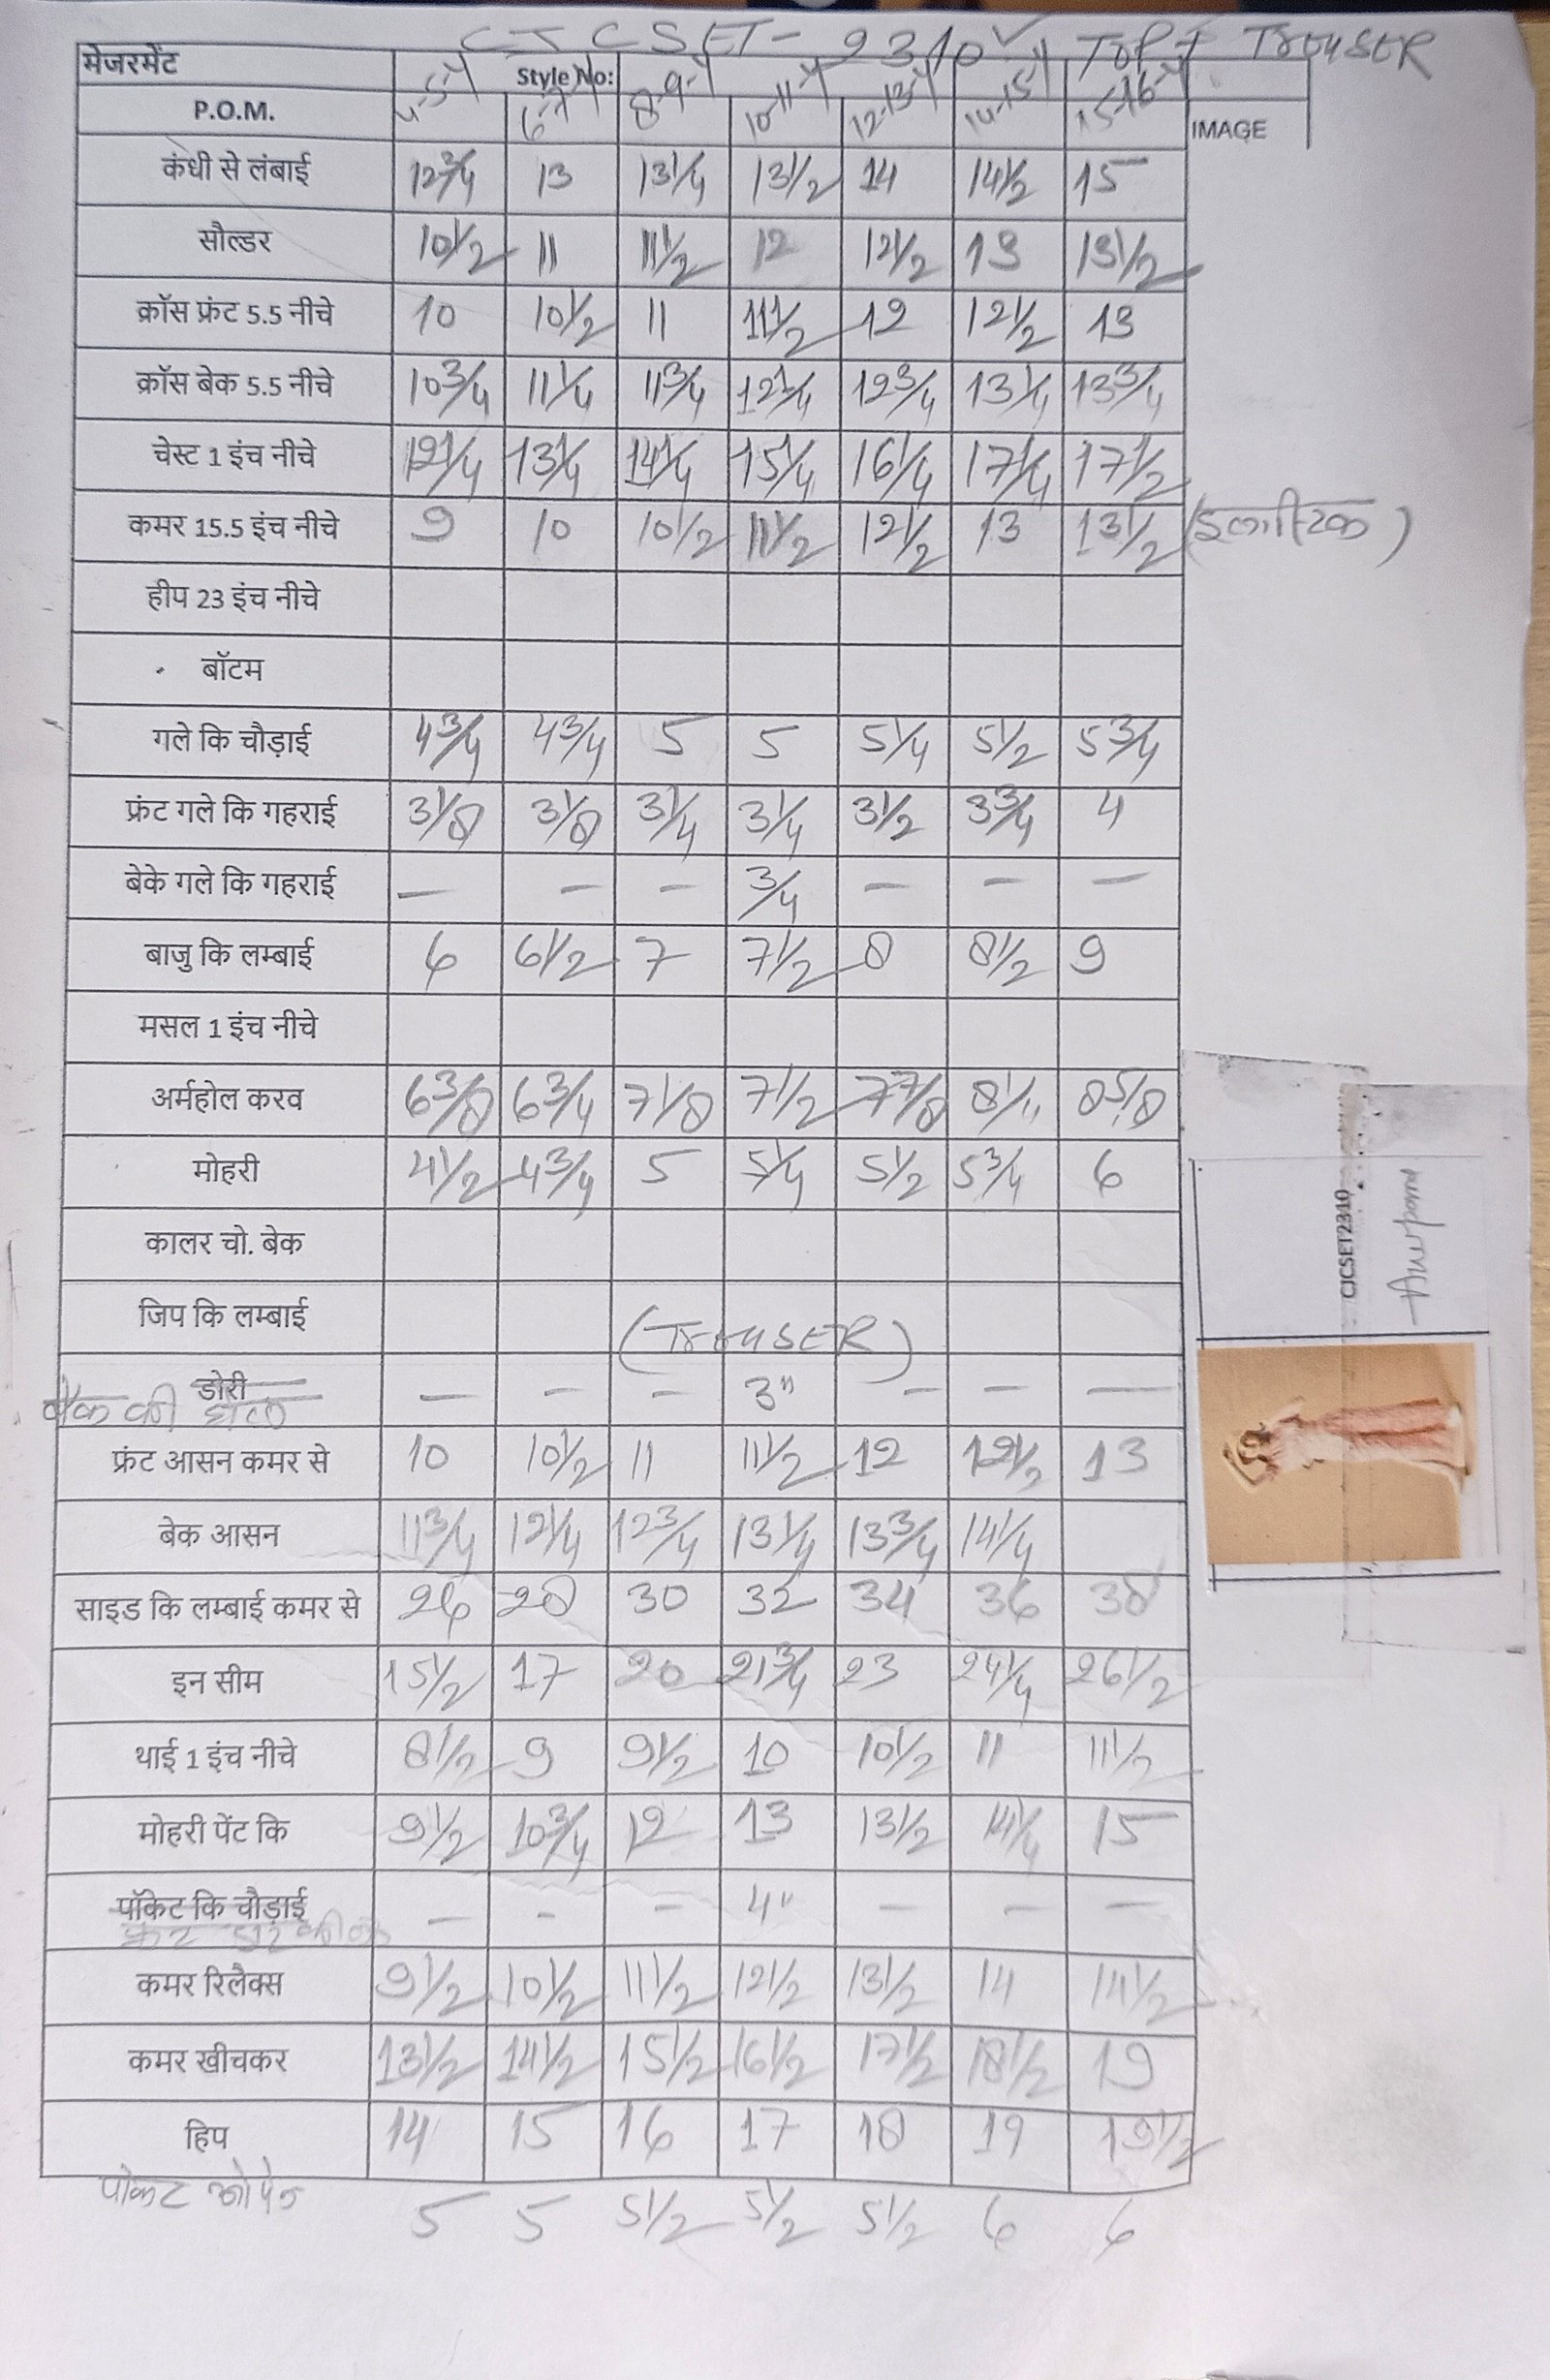 CJCSET-2310 ✓ TOP + TROUSER
मेजरमेंट Style No:
P.O.M. 4-5-Y 6-7-Y 8-9-Y 10-11-Y 12-13-Y 14-15-Y 15-16-Y IMAGE
कंधी से लंबाई 12 3/4 13 13 1/4 13 1/2 14 14 1/2 15
सौल्डर 10 1/2 11 11 1/2 12 12 1/2 13 13 1/2
क्रॉस फ्रंट 5.5 नीचे 10 10 1/2 11 11 1/2 12 12 1/2 13
क्रॉस बेक 5.5 नीचे 10 3/4 11 1/4 11 3/4 12 1/4 12 3/4 13 1/4 13 3/4
चेस्ट 1 इंच नीचे 12 1/4 13 1/4 14 1/4 15 1/4 16 1/4 17 1/4 17 1/2
कमर 15.5 इंच नीचे 9 10 10 1/2 11 1/2 12 1/2 13 13 1/2 (इलास्टिक)
हीप 23 इंच नीचे
बॉटम
गले कि चौड़ाई 4 3/4 4 3/4 5 5 5 1/4 5 1/2 5 3/4
फ्रंट गले कि गहराई 3 1/8 3 1/8 3 1/4 3 1/4 3 1/2 3 3/4 4
बेके गले कि गहराई — — — 3/4 — — —
बाजु कि लम्बाई 6 6 1/2 7 7 1/2 8 8 1/2 9
मसल 1 इंच नीचे
अर्महोल करव 6 3/8 6 3/4 7 1/8 7 1/2 7 7/8 8 1/4 8 5/8
मोहरी 4 1/2 4 3/4 5 5 1/4 5 1/2 5 3/4 6
कालर चो. बेक
जिप कि लम्बाई
(TROUSER)
डोरी — — — 3" — — —
बैक की
फ्रंट आसन कमर से 10 10 1/2 11 11 1/2 12 12 1/2 13
बेक आसन 11 3/4 12 1/4 12 3/4 13 1/4 13 3/4 14 1/4
साइड कि लम्बाई कमर से 26 28 30 32 34 36 38
इन सीम 15 1/2 17 20 21 3/4 23 24 1/4 26 1/2
थाई 1 इंच नीचे 8 1/2 9 9 1/2 10 10 1/2 11 11 1/2
मोहरी पेंट कि 9 1/2 10 3/4 12 13 13 1/2 14 1/4 15
पॉकेट कि चौड़ाई — — — 4" — — —
कमर रिलैक्स 9 1/2 10 1/2 11 1/2 12 1/2 13 1/2 14 14 1/2
कमर खीचकर 13 1/2 14 1/2 15 1/2 16 1/2 17 1/2 18 1/2 19
हिप 14 15 16 17 18 19 19 1/2
पोकट ओपेन 5 5 5 1/2 5 1/2 5 1/2 6 6
CJCSET2310
Anupama